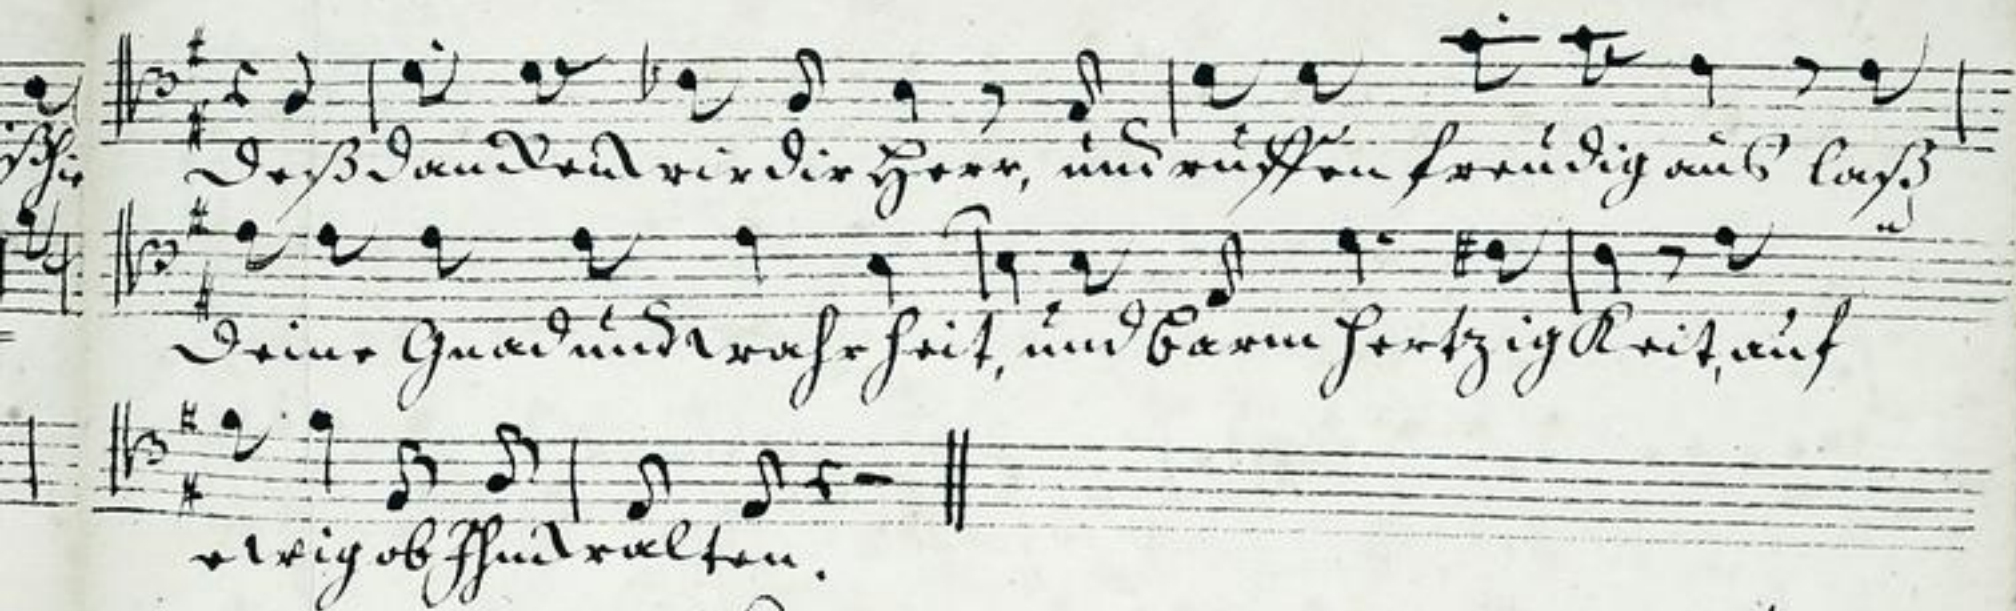 Deß dancken wir dir Herr, und ruffen freudig aus laß
Deine Gnad und Wahrheit, und barmhertzigKeit, auf
ewig ob Ihm walten.